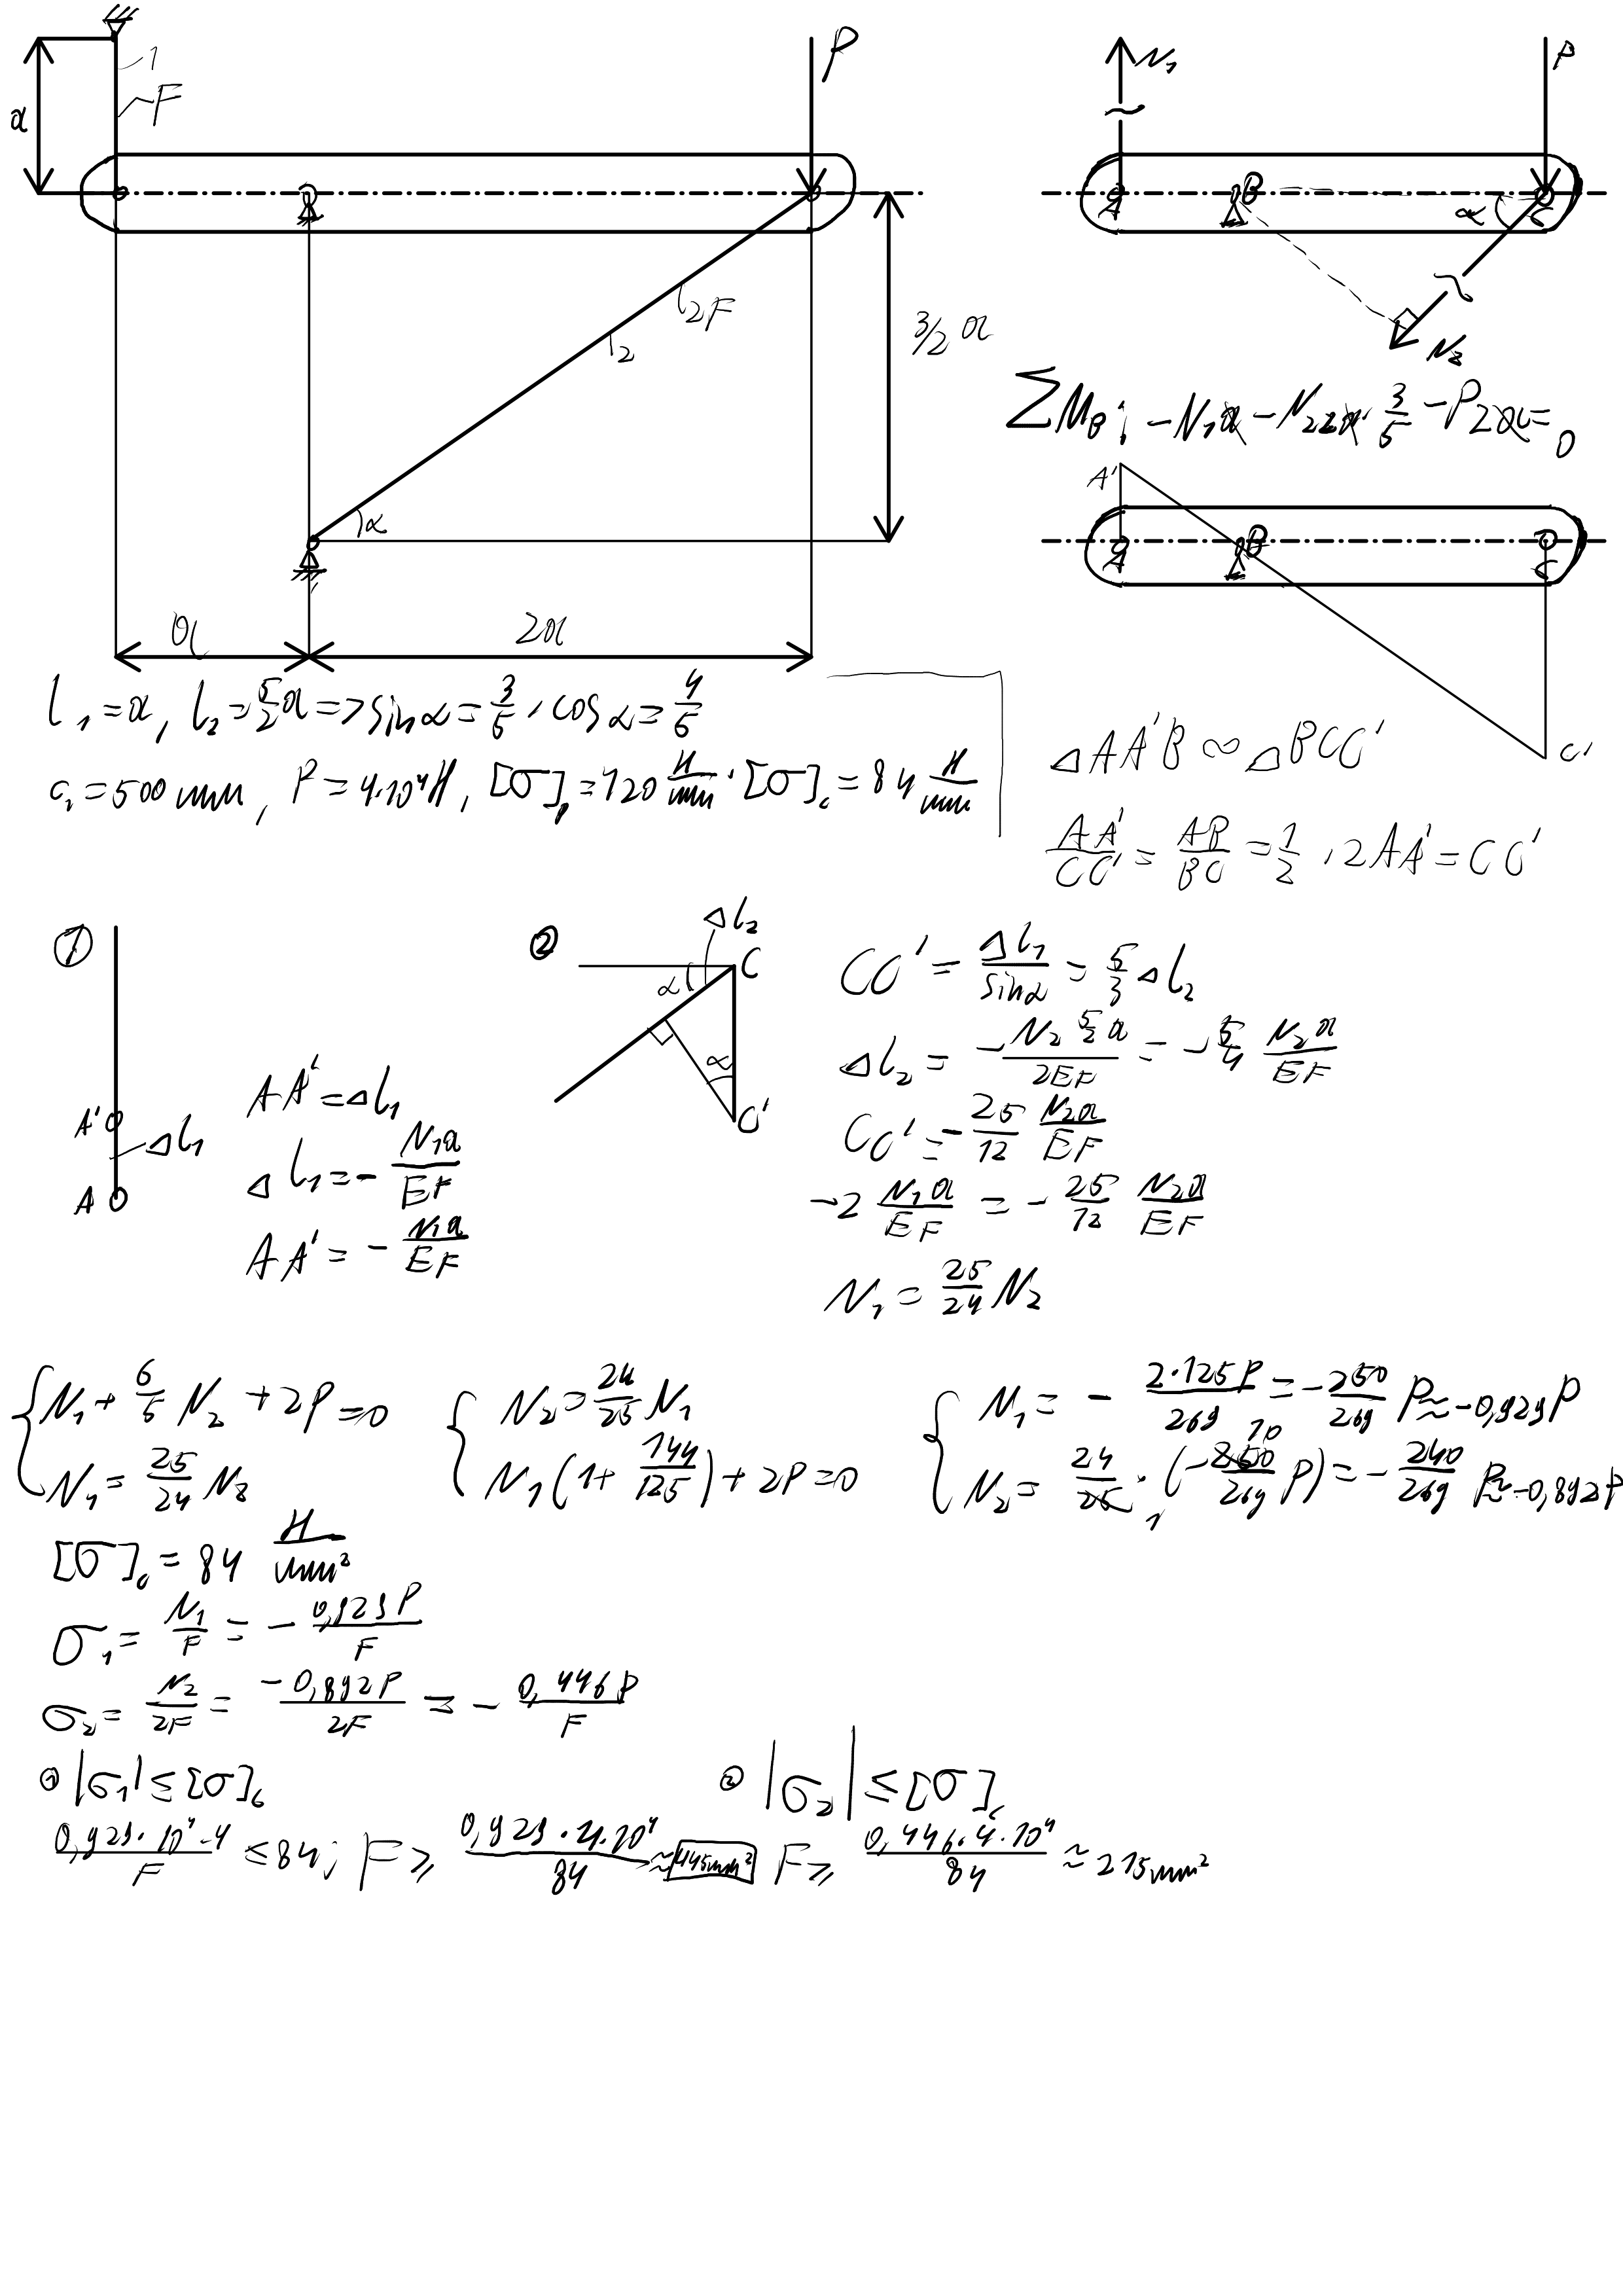 1
F
a
P
2F
2
3/2 a
α
a
2a
N₁
P
A
B
C
α
N₂
ΣM_B: -N₁a - N₂2a·3/5 - P2a = 0
A'
A
B
C
C'
l₁ = a, l₂ = 5/2 a => sin α = 3/5, cos α = 4/5
a = 500 мм, P = 4·10⁴ Н, [σ]p = 120 Н/мм, [σ]c = 84 Н/мм
△AA'B ∞ △BCC'
AA'/CC' = AB/BC = 1/2, 2AA' = CC'
①
A'
Δl₁
A
AA' = Δl₁
Δl₁ = - N₁a/EF
AA' = - N₁a/EF
②
Δl₂
C
α
α
C'
CC' = Δl₁/sin α = 5/3 Δl₂
Δl₂ = - N₂ 5/2 a/2EF = - 5/4 N₂a/EF
CC' = - 25/12 N₂a/EF
-2 N₁a/EF = - 25/12 N₂a/EF
N₁ = 25/24 N₂
{ N₁ + 6/5 N₂ + 2P = 0
N₁ = 25/24 N₂
{ N₂ = 24/25 N₁
N₁(1 + 144/125) + 2P = 0
{ N₁ = - 2·125P/269 = - 250/269 P ≈ -0,929P
N₂ = 24/25 · (- 250/269 P) = - 240/269 P ≈ -0,892P
[σ]c = 84 Н/мм²
σ₁ = N₁/F = - 0,929P/F
σ₂ = N₂/2F = -0,892P/2F = - 0,446P/F
① |σ₁| ≤ [σ]c
0,929·10⁴·4/F ≤ 84; F ≥ 0,929·4·10⁴/84 ≈ 445мм²
② |σ₂| ≤ [σ]c
F ≥ 0,446·4·10⁴/84 ≈ 215мм²